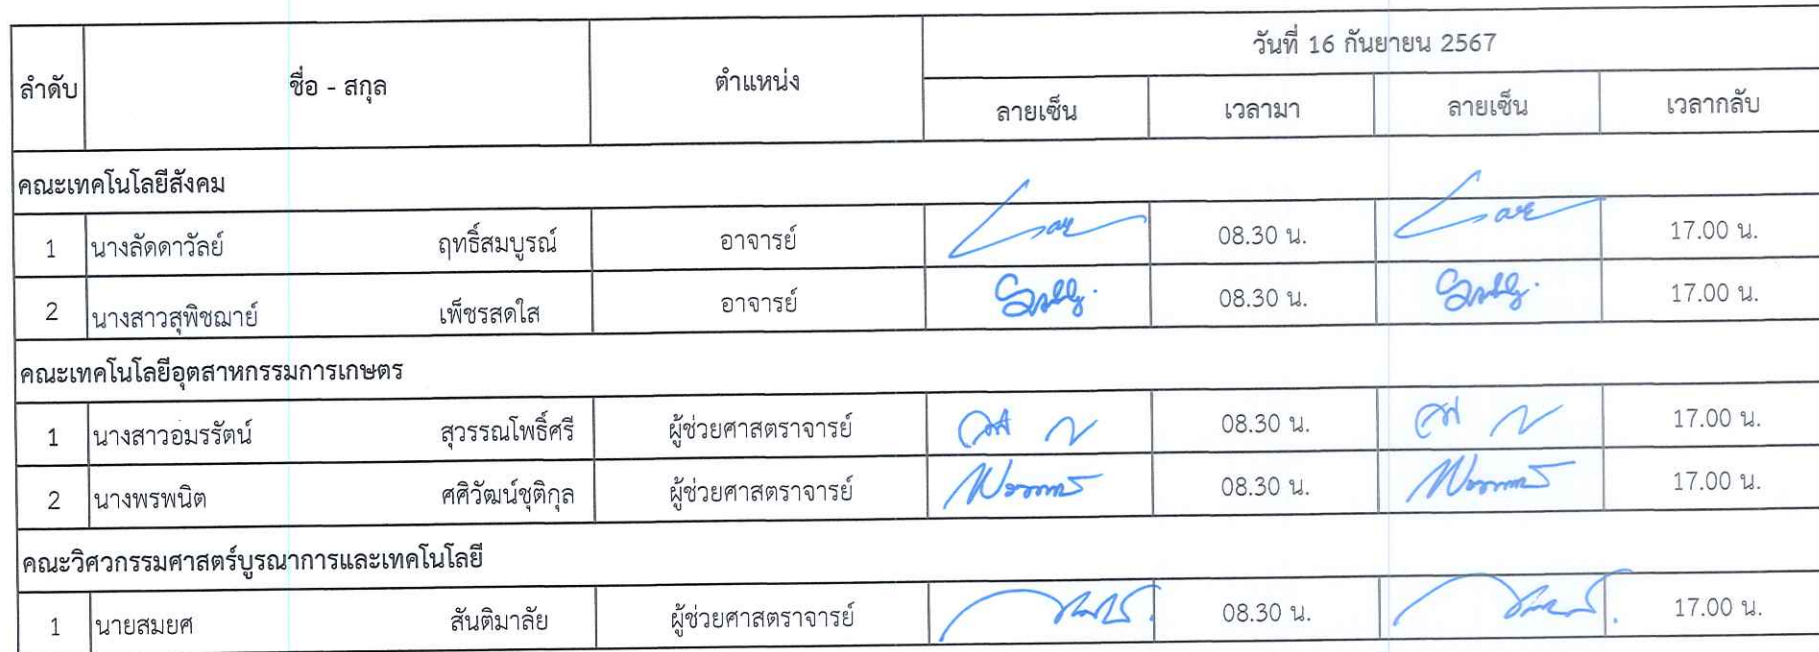 วันที่ 16 กันยายน 2567
ลำดับ ชื่อ - สกุล ตำแหน่ง
ลายเซ็น เวลามา ลายเซ็น เวลากลับ
คณะเทคโนโลยีสังคม
1 นางลัดดาวัลย์ ฤทธิ์สมบูรณ์ อาจารย์ 08.30 น. 17.00 น.
2 นางสาวสุพิชฌาย์ เพ็ชรสดใส อาจารย์ 08.30 น. 17.00 น.
คณะเทคโนโลยีอุตสาหกรรมการเกษตร
1 นางสาวอมรรัตน์ สุวรรณโพธิ์ศรี ผู้ช่วยศาสตราจารย์ 08.30 น. 17.00 น.
2 นางพรพนิต ศศิวัฒน์ชุติกุล ผู้ช่วยศาสตราจารย์ 08.30 น. 17.00 น.
คณะวิศวกรรมศาสตร์บูรณาการและเทคโนโลยี
1 นายสมยศ สันติมาลัย ผู้ช่วยศาสตราจารย์ 08.30 น. 17.00 น.